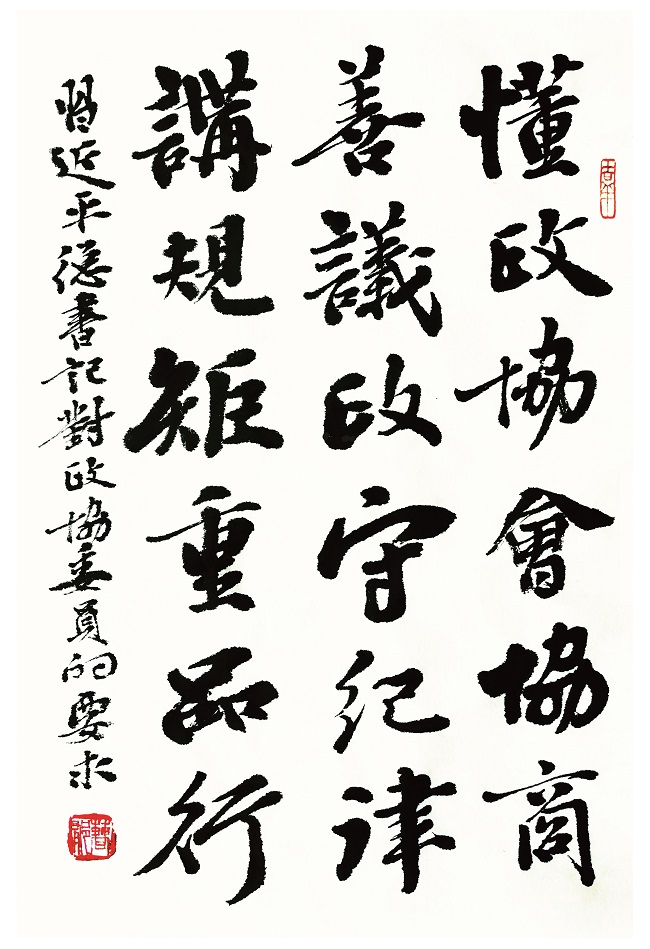 懂政協會協商
善議政守紀律
講規矩重品行
習近平總書記對政協委員的要求